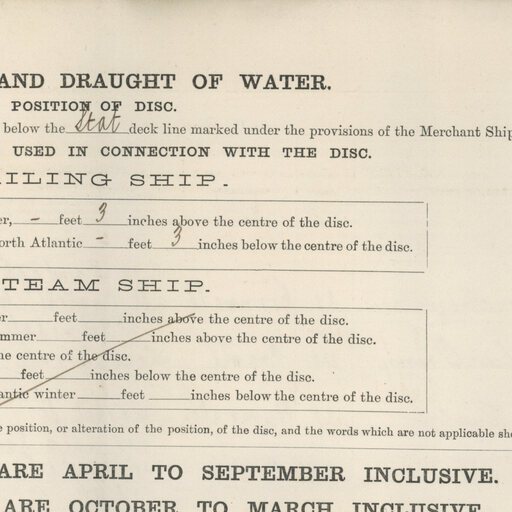 AND DRAUGHT OF WATER.
POSITION OF DISC.
below the Stat deck line marked under the provisions of the Merchant Ship
USED IN CONNECTION WITH THE DISC.
AILING SHIP.
er, - feet 3 inches above the centre of the disc.
orth Atlantic - feet 3 inches below the centre of the disc.
TEAM SHIP.
er feet inches above the centre of the disc.
mmer feet inches above the centre of the disc.
he centre of the disc.
feet inches below the centre of the disc.
antic winter feet inches below the centre of the disc.
e position, or alteration of the position, of the disc, and the words which are not applicable sho
ARE APRIL TO SEPTEMBER INCLUSIVE.
ARE OCTOBER TO MARCH INCLUSIVE